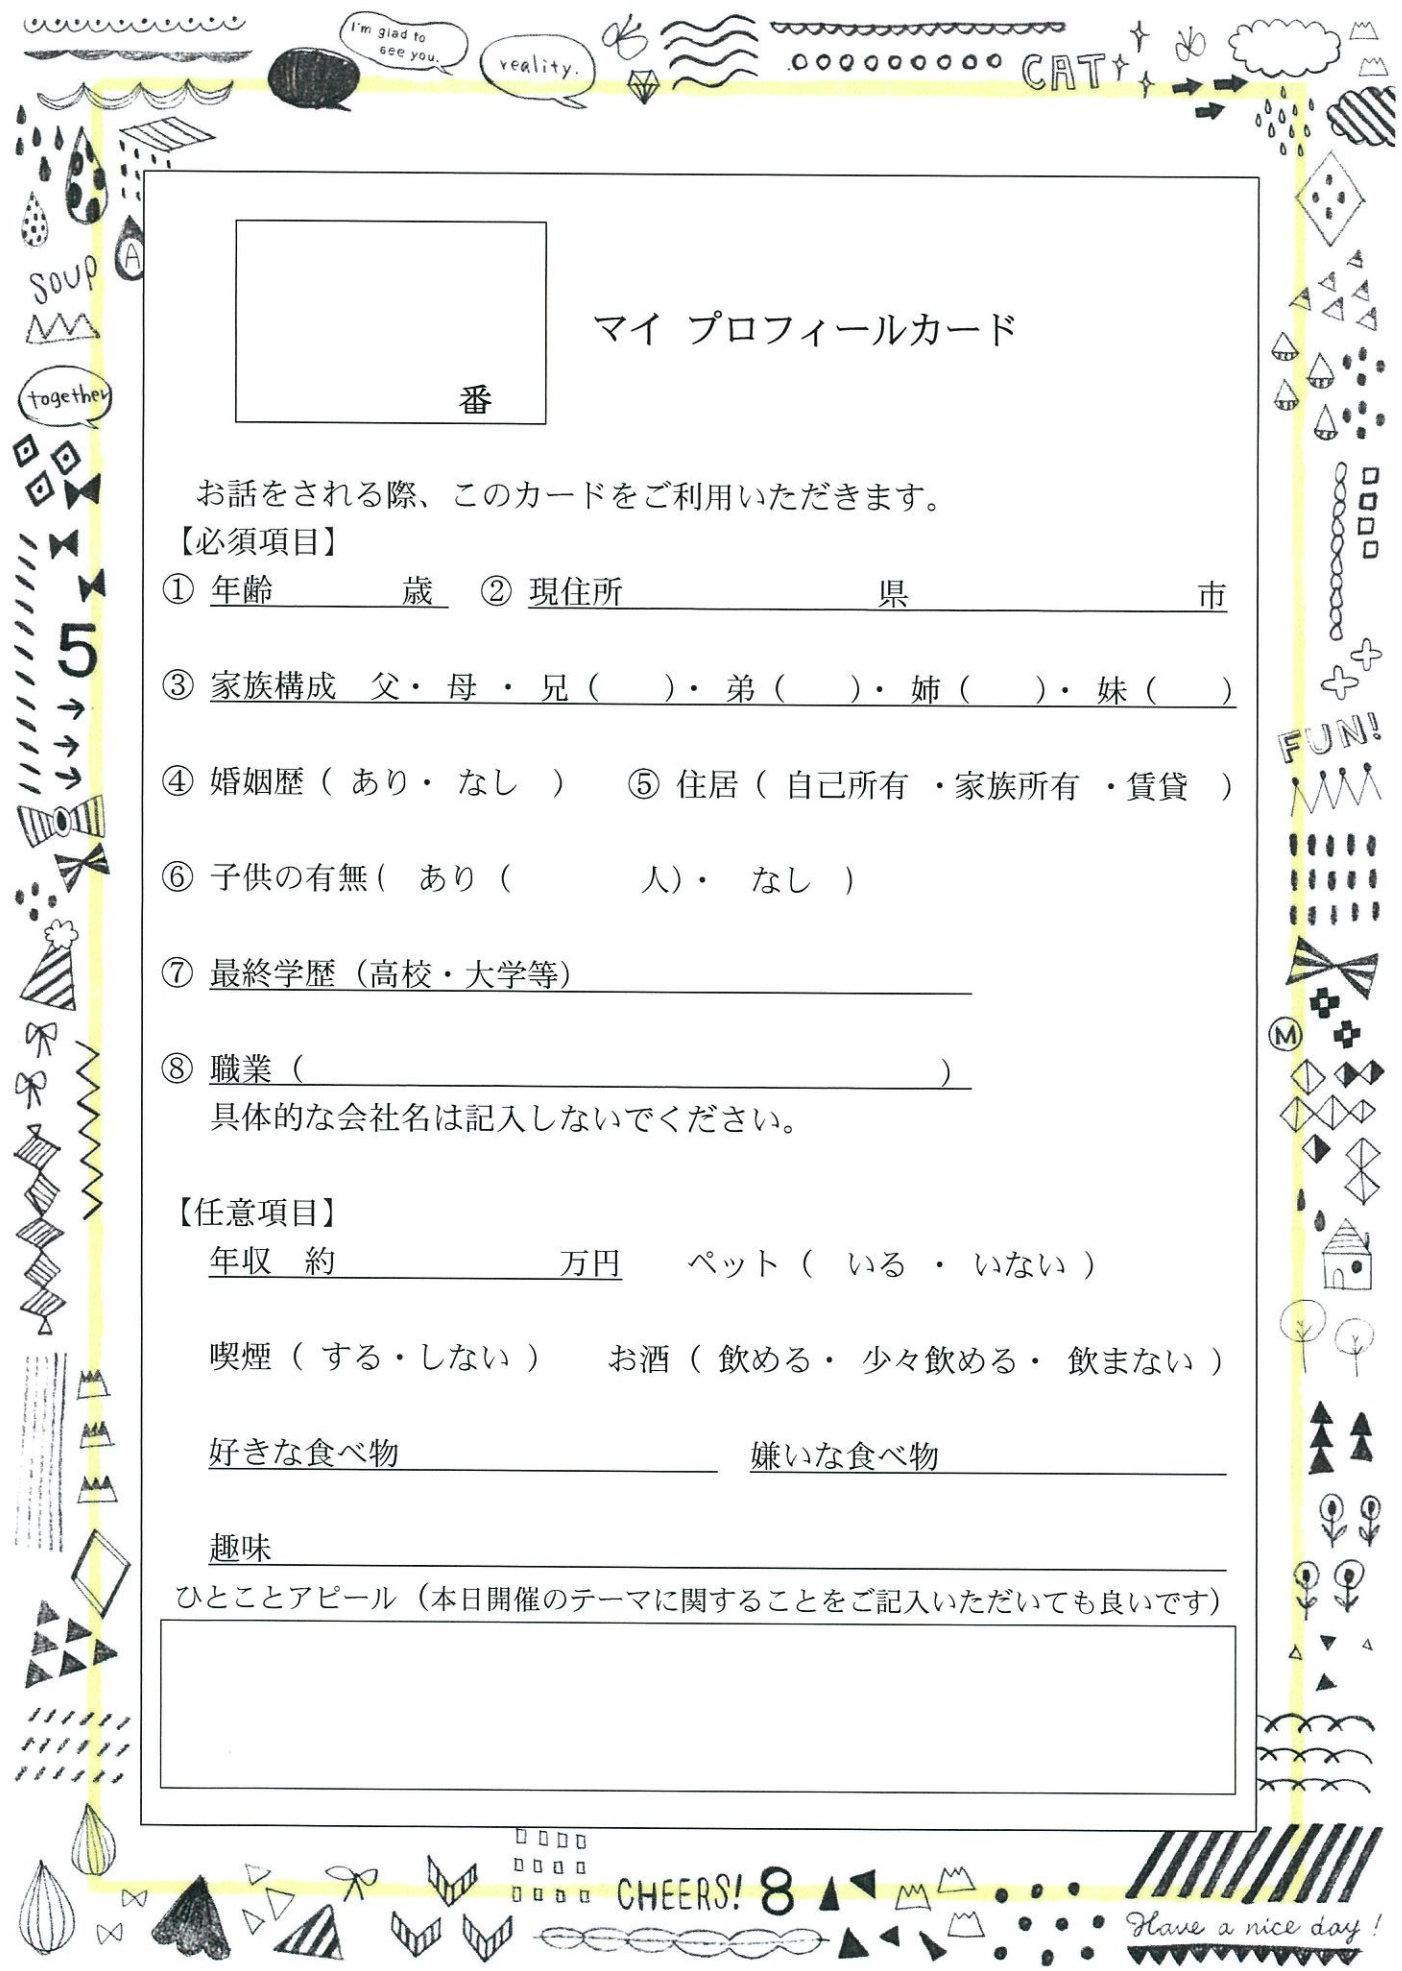 I'm glad to
see you.
reality.
CAT
SOUP
A
together
5
FUN!
M
番
マイ プロフィールカード
お話をされる際、このカードをご利用いただきます。
【必須項目】
① 年齢 歳 ② 現住所 県 市
③ 家族構成 父・ 母 ・ 兄( )・ 弟( )・ 姉( )・ 妹( )
④ 婚姻歴( あり・ なし ) ⑤ 住居( 自己所有 ・家族所有 ・賃貸 )
⑥ 子供の有無( あり( 人)・ なし )
⑦ 最終学歴(高校・大学等)
⑧ 職業( )
具体的な会社名は記入しないでください。
【任意項目】
年収 約 万円 ペット( いる ・ いない )
喫煙( する・しない ) お酒( 飲める・ 少々飲める・ 飲まない )
好きな食べ物 嫌いな食べ物
趣味
ひとことアピール(本日開催のテーマに関することをご記入いただいても良いです)
CHEERS! 8
Have a nice day!